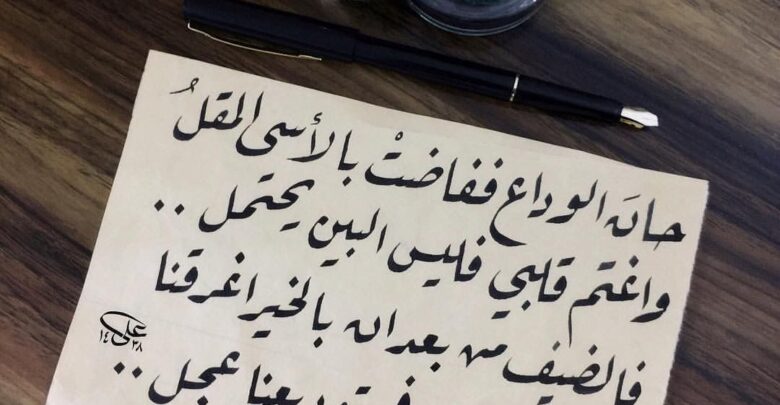 حانَ الوداع ففاضتْ بالأسى المقلُ
واغتم قلبي فليس البين يحتمل ..
فالضيف من بعد ان بالخير اغرقنا
في توديعنا عجل ..
علي
١٤٣٨